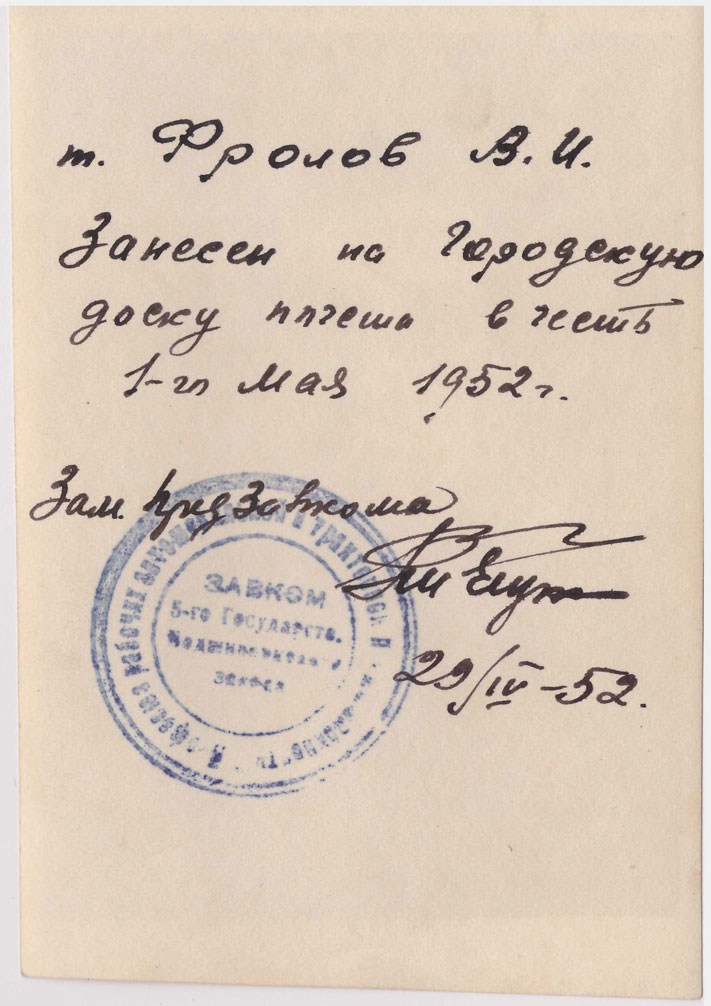 т. Фролов В. И.
Занесен на Городскую
доску почета в честь
1-го Мая 1952 г.
Зам. пред завкома
29/IV-52.
ЗАВКОМ
5-го Государств.
Подшипникового
завода